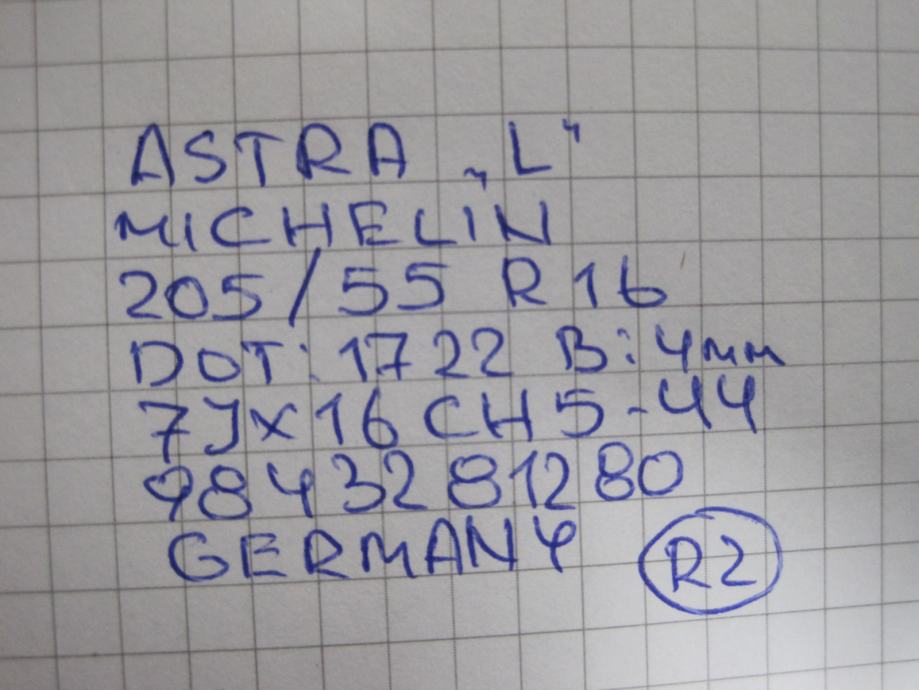 ASTRA „L"
MICHELIN
205/55 R16
DOT: 1722 B: 4mm
7Jx16 CH5-44
98 432 812 80
GERMANY
R2